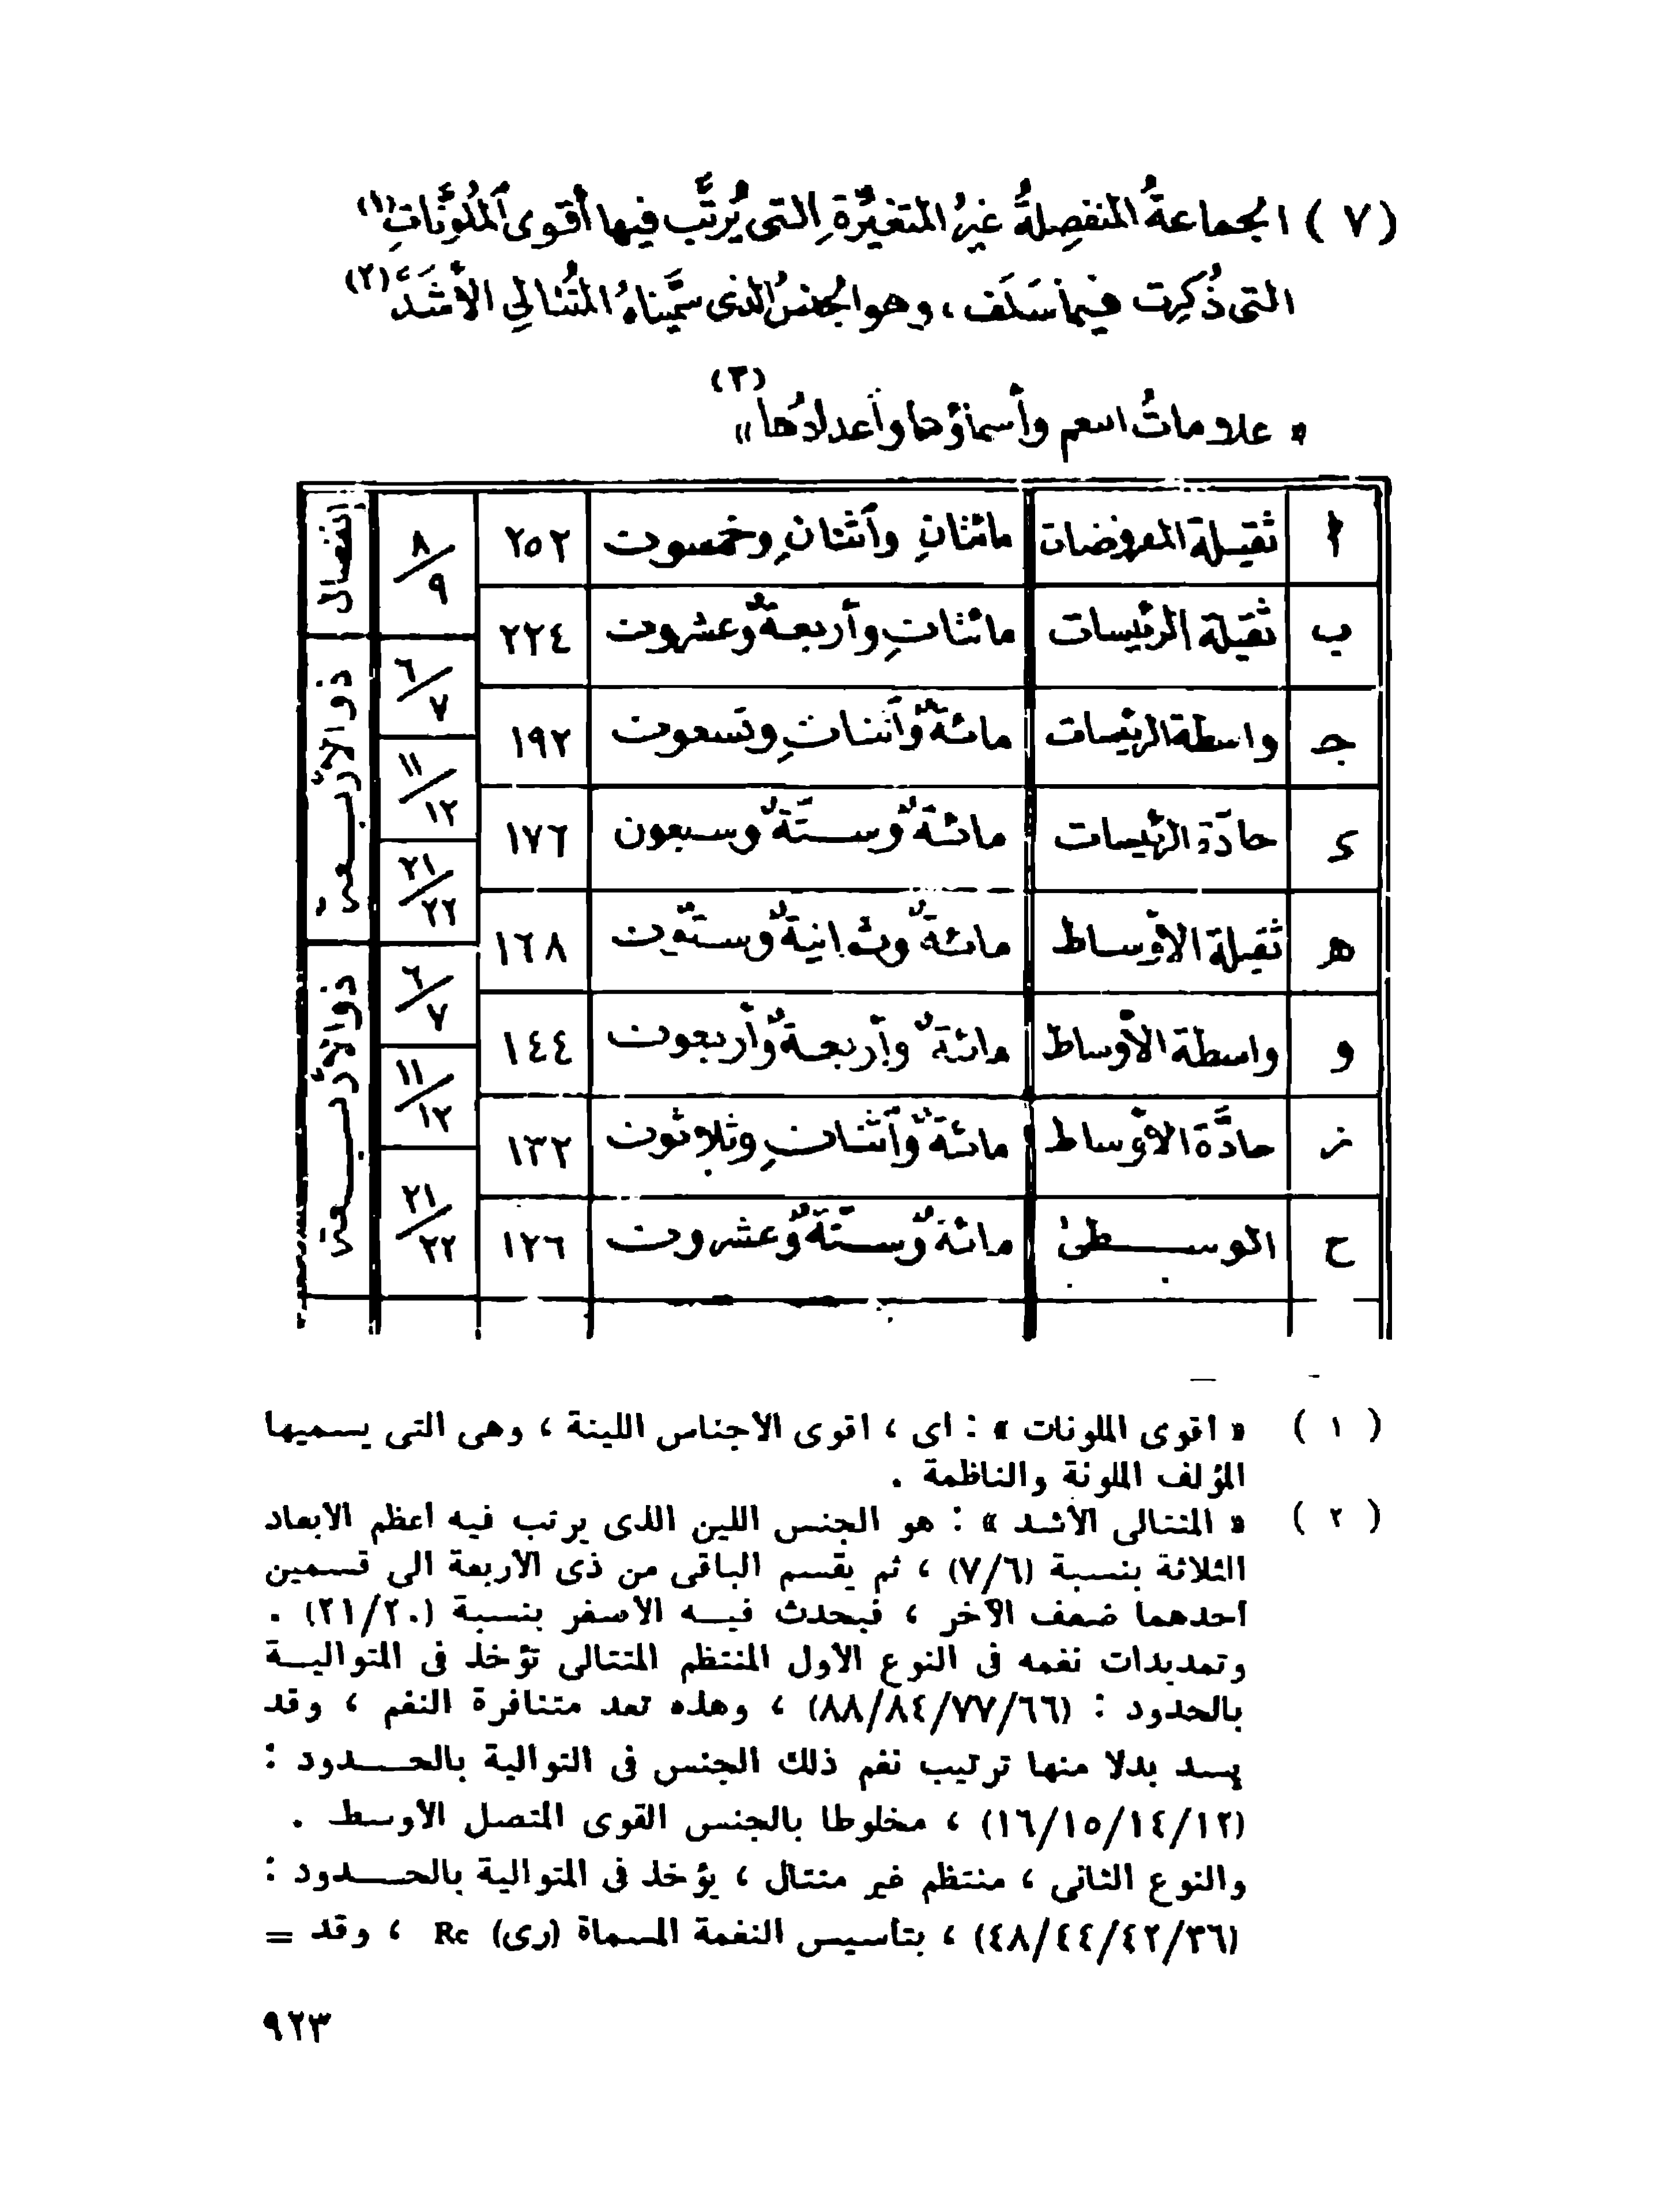 (٧) الجماعةُ المنفصِلةُ غيرُ المتغيِّرةِ التى يُرتَّب فيها أقوى المُلوِّناتِ(١)
التى ذُكِرت فيما سَلَف ، وهو الجنسُ الذى سمَّيناهُ المُتتالِي الأشَدَّ(٢)
« علاماتُ النغم وأسماؤها وأعدادُها »(٣)
ا ثقيلة المفروضات مائتانِ واثنتانِ وخمسون ٢٥٢ ٨/٩ انفصال
ب ثقيلة الرئيسات مائتانِ وأربعةٌ وعشرون ٢٢٤ ٦/٧ ذو الأربعة
ج واسطة الرئيسات مائةٌ واثنانِ وتسعون ١٩٢ ١١/١٢
د حادّة الرئيسات مائةٌ وستَّةٌ وسبعون ١٧٦ ٢١/٢٢
ه ثقيلة الأوساط مائةٌ وثمانيةٌ وستّون ١٦٨ ٦/٧ ذو الأربعة
و واسطة الأوساط مائةٌ وأربعةٌ وأربعون ١٤٤ ١١/١٢
ز حادَّة الأوساط مائةٌ واثنانِ وثلاثون ١٣٢ ٢١/٢٢
ح الوسطىٰ مائةٌ وستَّةٌ وعشرون ١٢٦
( ١ ) « اقوى الملونات » : اى ، اقوى الاجناس اللينة ، وهى التى يسميها
المؤلف الملونة والناظمة .
( ٢ ) « المتتالى الأشد » : هو الجنس اللين الذى يرتب فيه اعظم الابعاد
الثلاثة بنسبة (٧/٦) ، ثم يقسم الباقى من ذى الأربعة الى قسمين
احدهما ضعف الآخر ، فيحدث فيه الأصغر بنسبة (٢١/٢٠) .
وتمديدات نغمه فى النوع الأول المنتظم المتتالى تؤخذ فى المتوالية
بالحدود : (٨٨/٨٤/٧٧/٦٦) ، وهذه تعد متنافرة النغم ، وقد
يسد بدلا منها ترتيب نغم ذلك الجنس فى التوالية بالحدود :
(١٦/١٥/١٤/١٢) ، مخلوطا بالجنس القوى المتصل الأوسط .
والنوع الثانى ، منتظم غير متتال ، يؤخذ فى المتوالية بالحدود :
(٤٨/٤٤/٤٢/٣٦) ، بتأسيس النغمة المسماة (رى) Re ، وقد =
٩٢٣